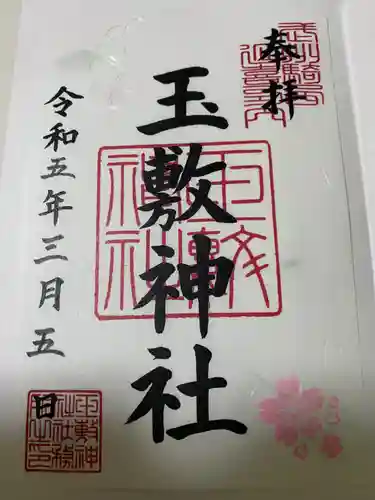 奉拝
玉敷神社
令和五年三月五日
玉敷神社
玉敷神社社務之印